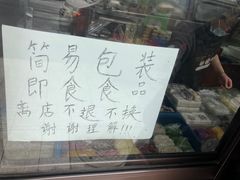 简易包装
即食食品
离店不退不换
谢谢理解!!!